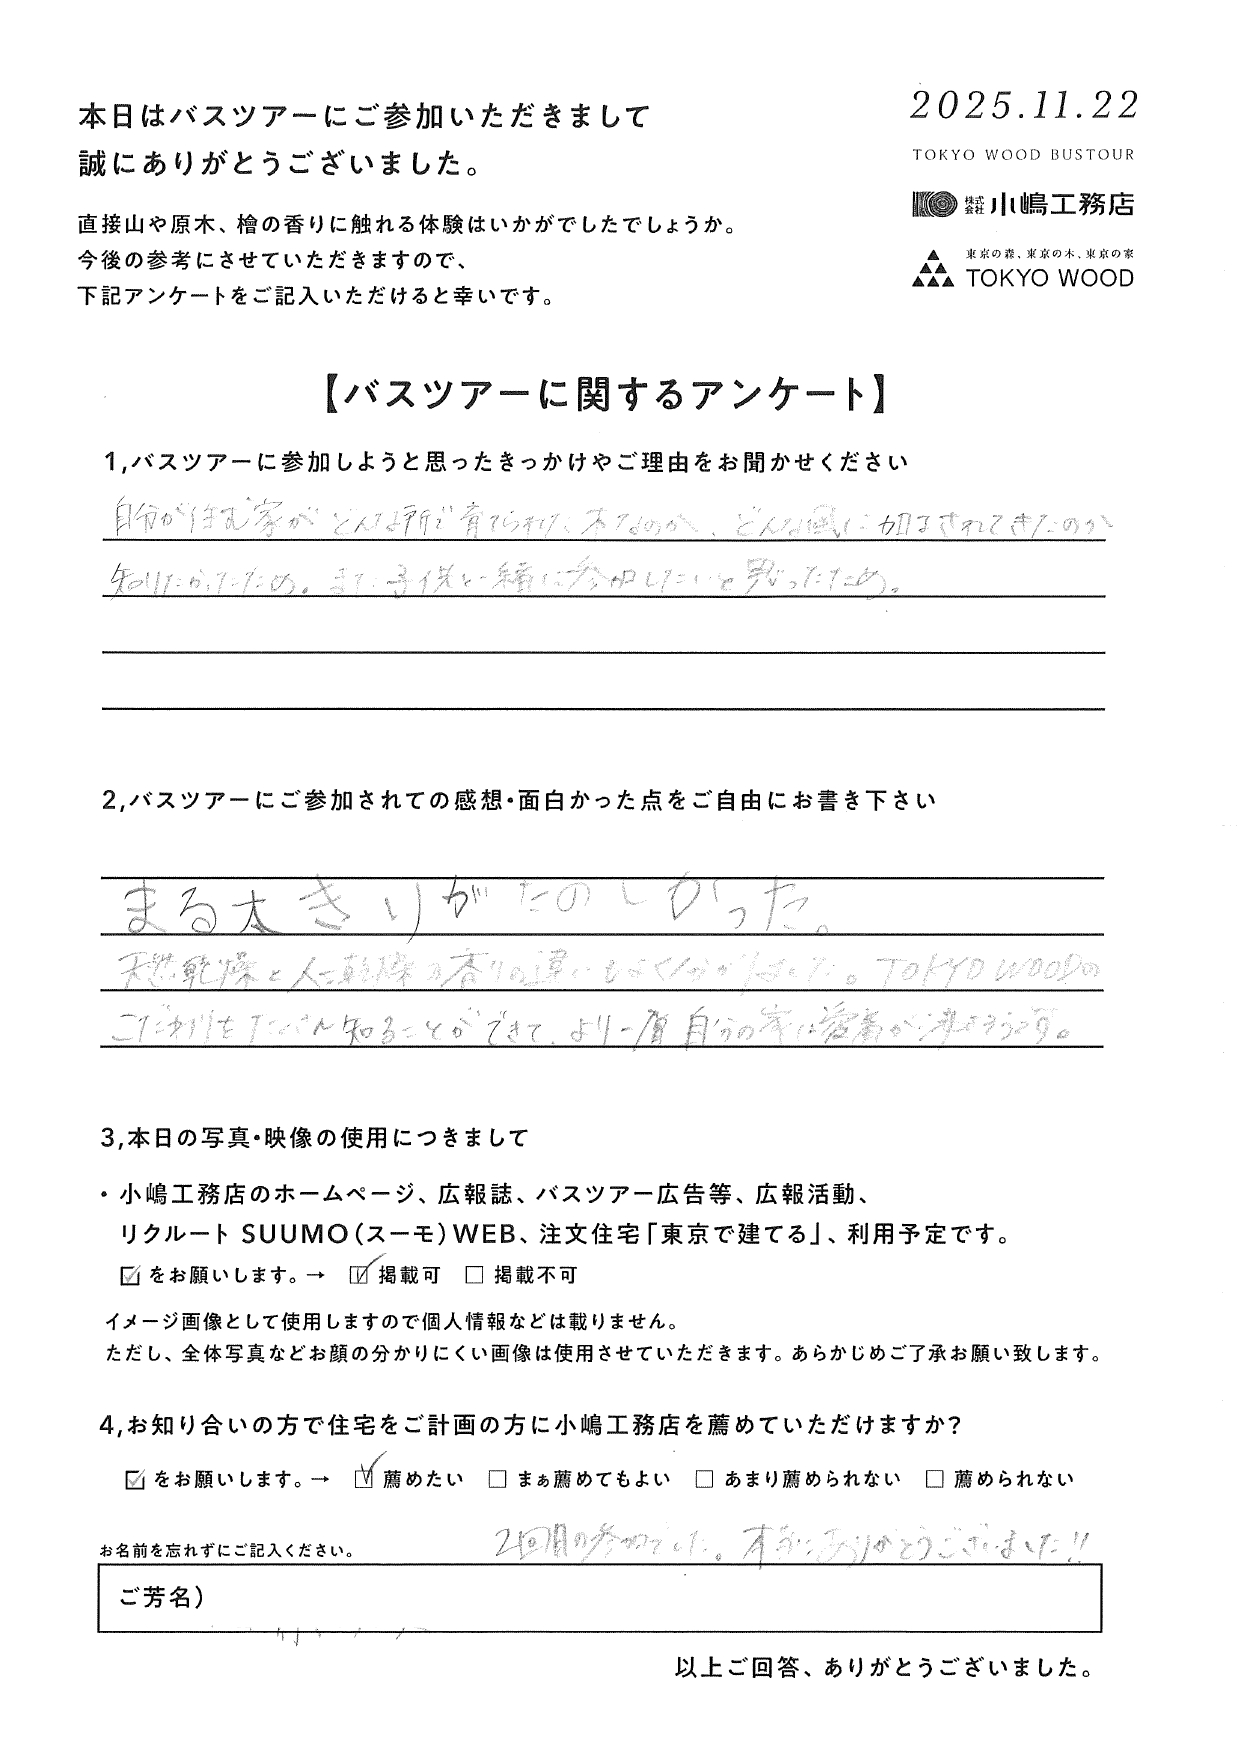 本日はバスツアーにご参加いただきまして
誠にありがとうございました。
直接山や原木、檜の香りに触れる体験はいかがでしたでしょうか。
今後の参考にさせていただきますので、
下記アンケートをご記入いただけると幸いです。
2025.11.22
TOKYO WOOD BUSTOUR
株式会社 小嶋工務店
東京の森、東京の木、東京の家
TOKYO WOOD
【バスツアーに関するアンケート】
1,バスツアーに参加しようと思ったきっかけやご理由をお聞かせください
自分が住む家がどんな所で育てられた木なのか、どんな風に加工されてきたのか
知りたかったため。また子供と一緒に参加したいと思ったため。
2,バスツアーにご参加されての感想・面白かった点をご自由にお書き下さい
まる太きりがたのしかった。
天然乾燥と人工乾燥の香りの違いもよく分かりました。TOKYO WOODの
こだわりをたくさん知ることができて、より一層自分の家に愛着が湧きそうです。
3,本日の写真・映像の使用につきまして
・小嶋工務店のホームページ、広報誌、バスツアー広告等、広報活動、
リクルート SUUMO(スーモ)WEB、注文住宅「東京で建てる」、利用予定です。
☑をお願いします。→ ☑掲載可 □掲載不可
イメージ画像として使用しますので個人情報などは載りません。
ただし、全体写真などお顔の分かりにくい画像は使用させていただきます。あらかじめご了承お願い致します。
4,お知り合いの方で住宅をご計画の方に小嶋工務店を薦めていただけますか?
☑をお願いします。→ ☑薦めたい □まぁ薦めてもよい □あまり薦められない □薦められない
2回目の参加でした。本当にありがとうございました!!
お名前を忘れずにご記入ください。
ご芳名)
以上ご回答、ありがとうございました。